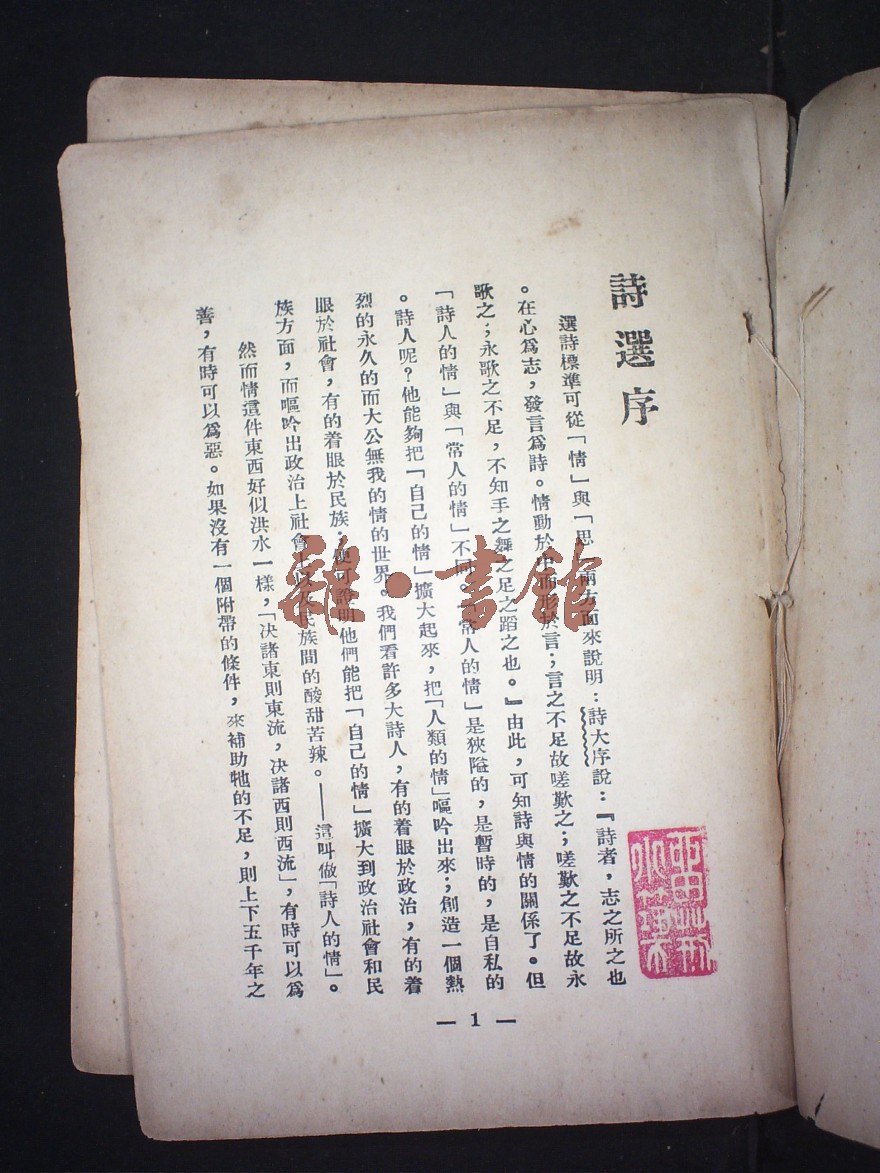 詩選序
選詩標準可從「情」與「思」兩方面來說明：詩大序說：『詩者，志之所之也
。在心爲志，發言爲詩。情動於中而形於言；言之不足故嗟歎之；嗟歎之不足故永
歌之；永歌之不足，不知手之舞之足之蹈之也。』由此，可知詩與情的關係了。但
「詩人的情」與「常人的情」不同。「常人的情」是狹隘的，是暫時的，是自私的
。詩人呢？他能夠把「自己的情」擴大起來，把「人類的情」嘔吟出來；創造一個熱
烈的永久的而大公無我的情的世界。我們看許多大詩人，有的着眼於政治，有的着
眼於社會，有的着眼於民族；便可證明他們能把「自己的情」擴大到政治社會和民
族方面，而嘔吟出政治上社會上以及民族間的酸甜苦辣。——這叫做「詩人的情」。
然而情這件東西好似洪水一樣，「決諸東則東流，決諸西則西流」，有時可以爲
善，有時可以爲惡。如果沒有一個附帶的條件，來補助牠的不足，則上下五千年之
— 1 —
雜·書館